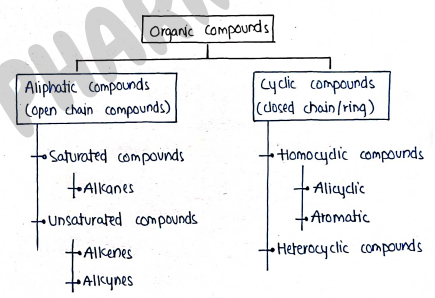 Organic compounds
Aliphatic compounds
(open chain compounds)
Cyclic compounds
(closed chain/ring)
Saturated compounds
Alkanes
Unsaturated compounds
Alkenes
Alkynes
Homocyclic compounds
Alicyclic
Aromatic
Heterocyclic compounds